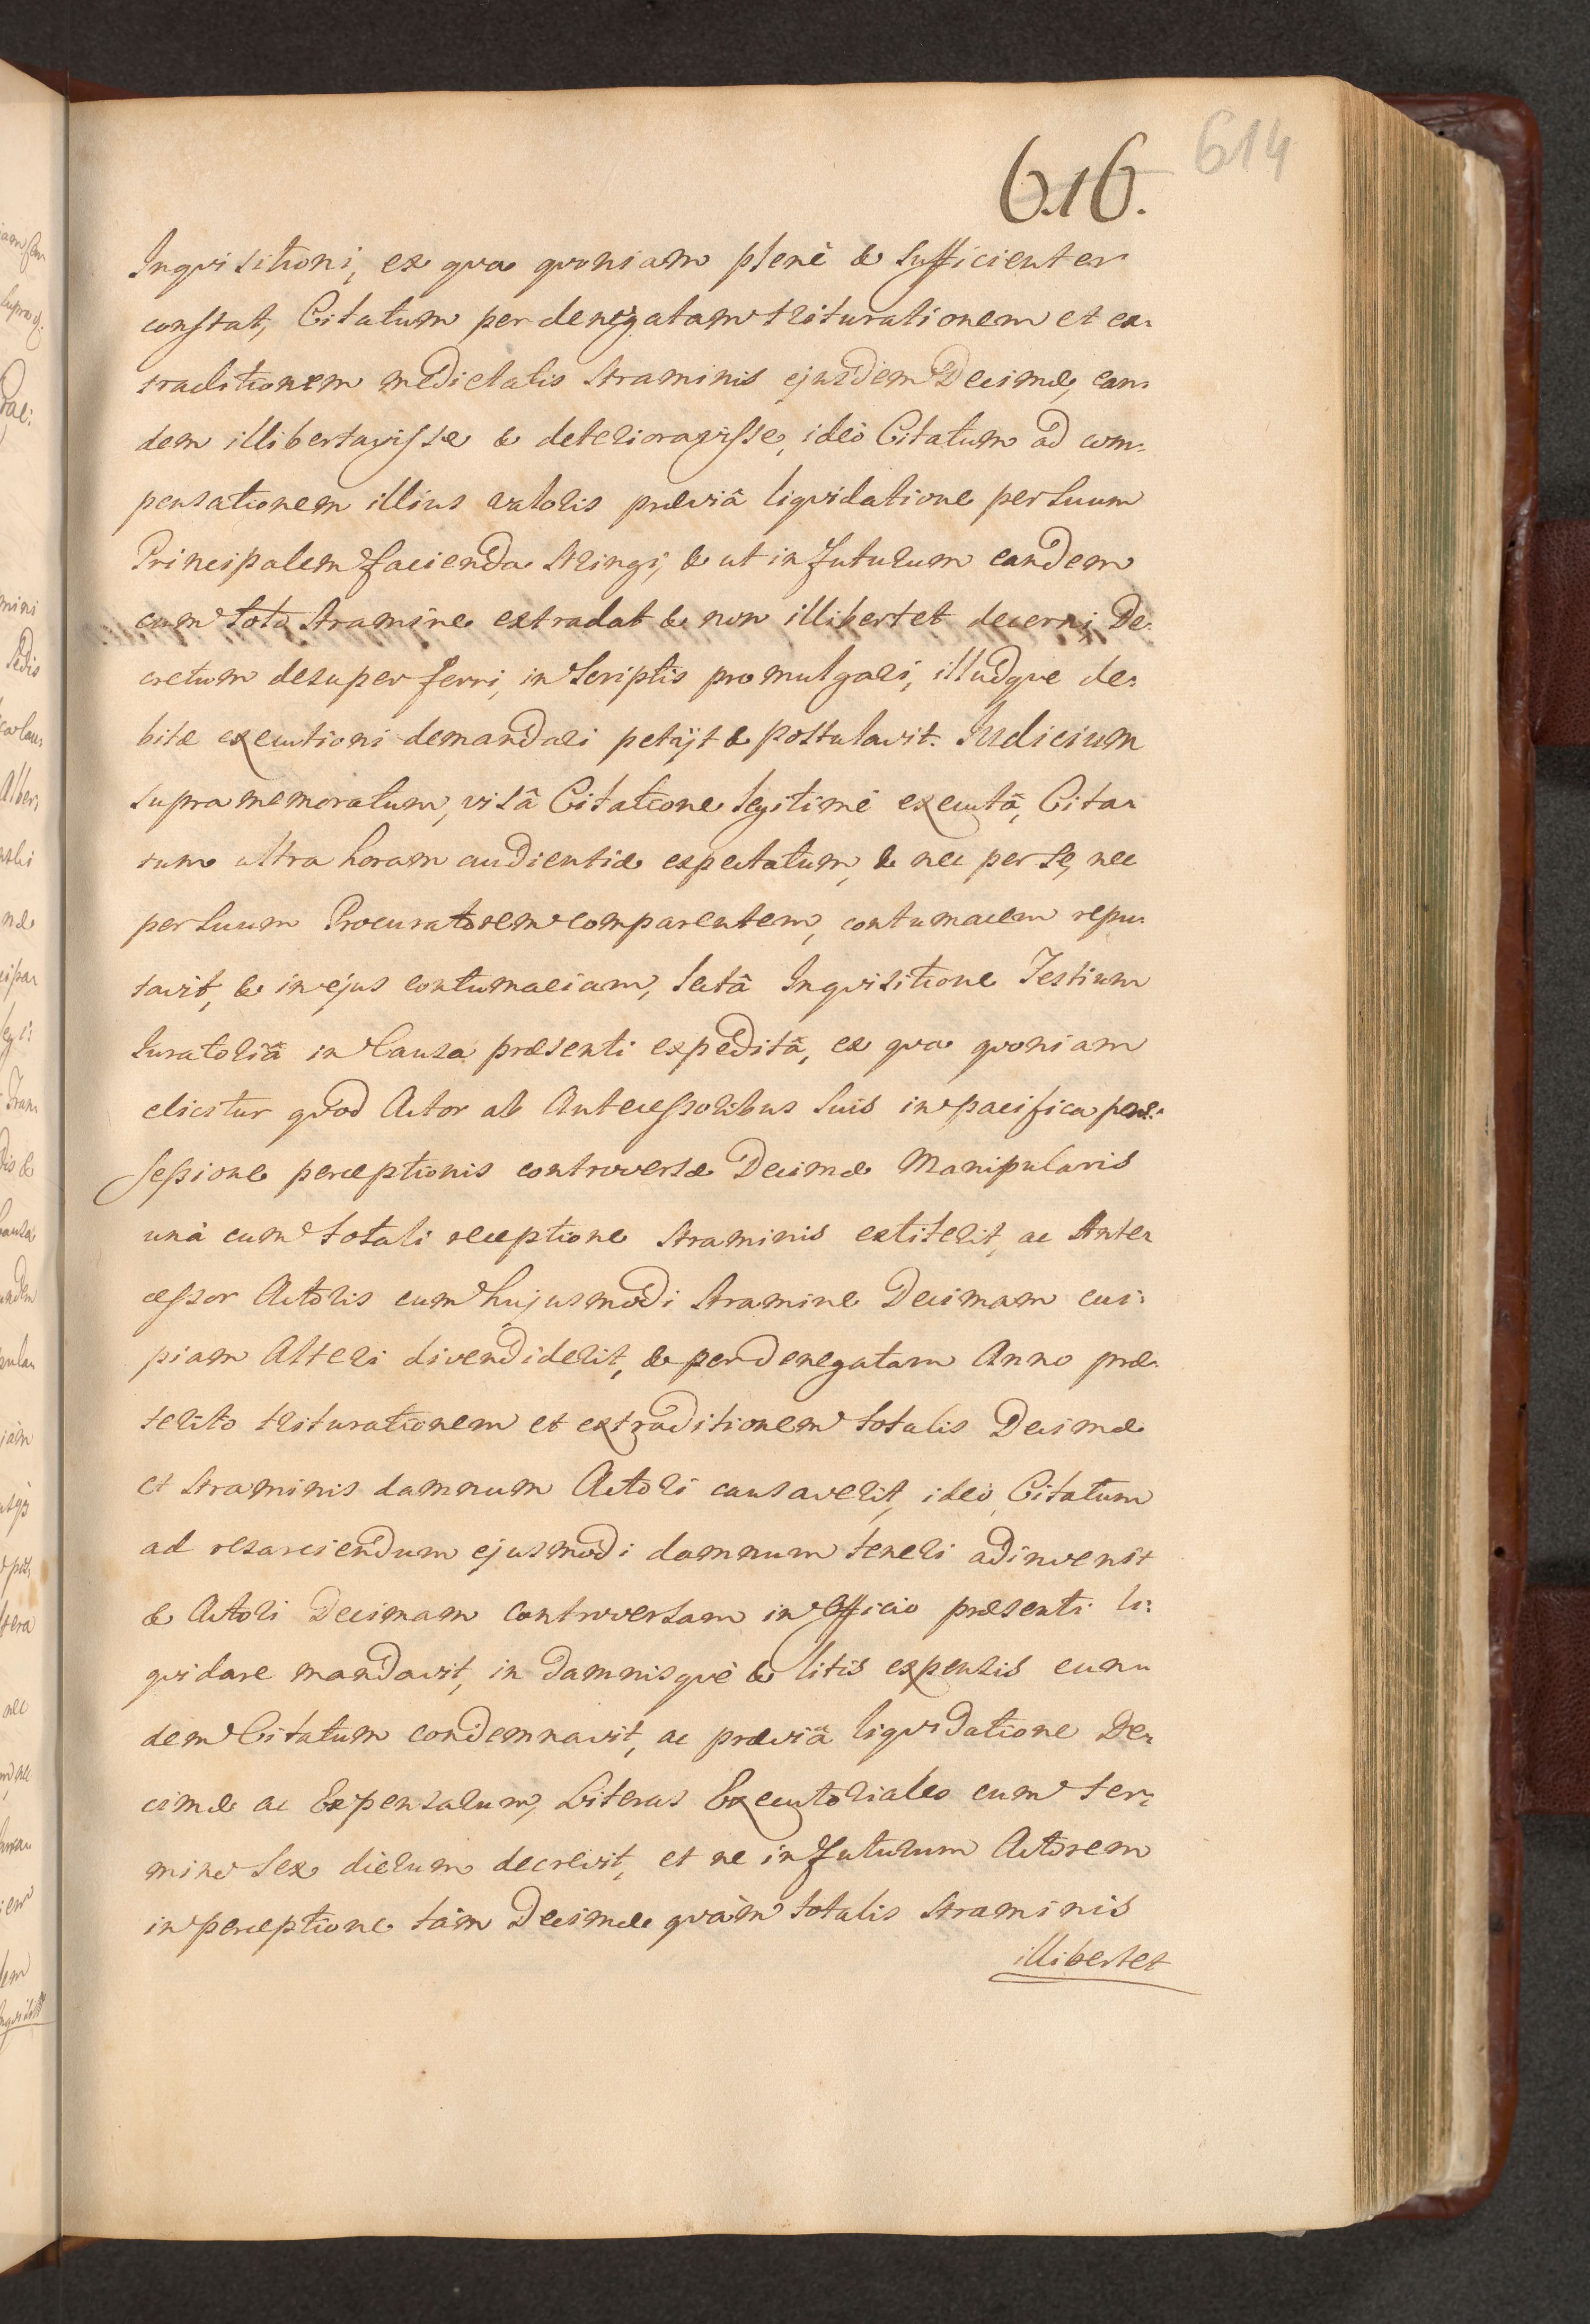 614
616.
Inqvisitioni, ex qva qvoniam plenè & sufficienter
constat, Citatum per denegatam triturationem et ex:
traditionem medietatis straminis ejusdem Decimæ, ean:
dem illibertavisse & deterioravisse, ideò Citatum ad com:
pensationem illius valoris præviâ liqvidatione per suum
Principalem facienda stringi, & ut in futurum eandem
cum toto stramine extradat & non illibertet decerni, De:
cretum desuper ferri, in scriptis promulgari, illudqve de:
bitæ executioni demandari petijt & postulavit. Judicium
supramemoratum, visâ Citatione legitimè executâ, Cita:
tum ultra horam audientiæ expectatum, & nec per se, nec
per suum Procuratorem comparentem, contumacem repu:
tavit, & in ejus contumaciam, lectâ Inqvisitione Testium
Juratoriâ in Causa præsenti expeditâ, ex qva qvoniam
elicitur qvod Actor ab Antecessoribus suis in pacifica pos:
sessione perceptionis controversæ Decimæ Manipularis
unà cum totali receptione straminis extiterit, ac Ante:
cessor Actoris cum hujusmodi stramine Decimam cui:
piam Alteri divendiderit, & per denegatam Anno præ:
terito triturationem et extraditionem totalis Decimæ
et straminis damnum Actori causaverit, ideò Citatum
ad resarciendum ejusmodi damnum teneri adinvenit
& Actori Decimam controversam in Officio præsenti li:
qvidare mandavit, in damnisqvè & litis expensis eun:
dem Citatum condemnavit, ac præviâ liqvidatione De:
cimæ ac Expensarum, Literas Executoriales cum ter:
mino sex dierum decrevit, et ne in futurum Actorem
in perceptione tàm Decimæ qvàm totalis straminis
illibertet